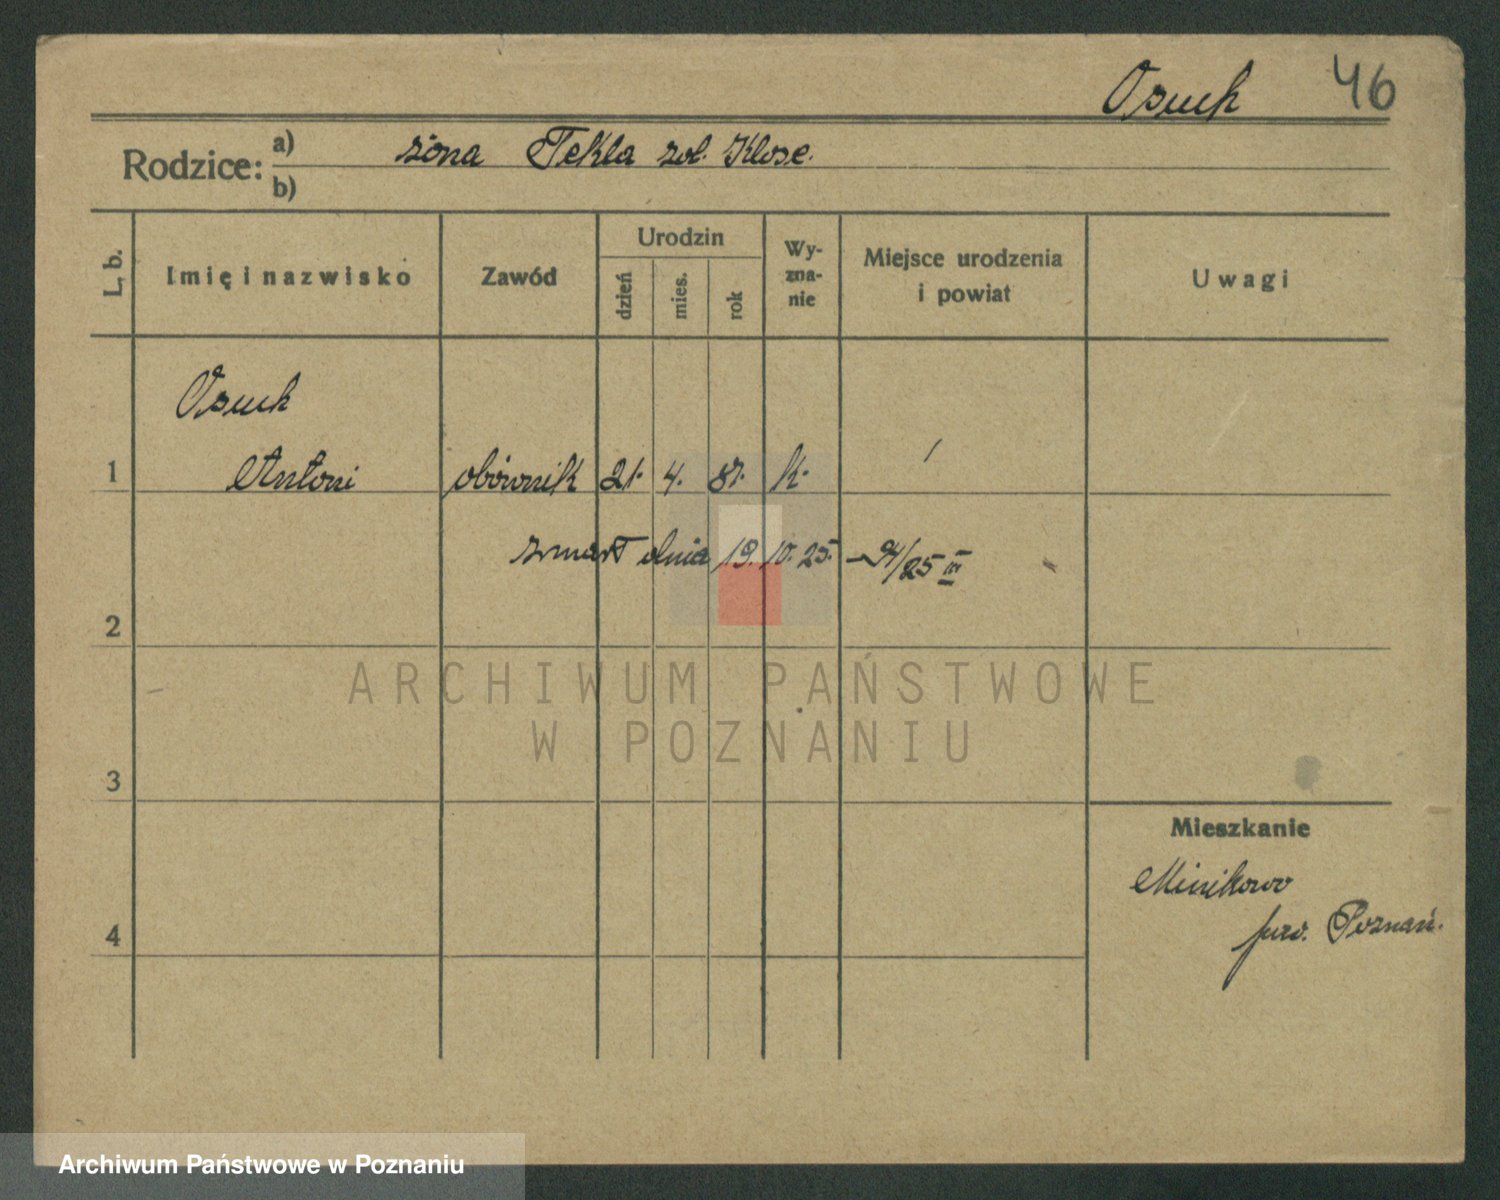 Osuch 46
Rodzice: a) żona Tekla zol. Klose.
b)
L. b.
Imię i nazwisko
Zawód
Urodzin
dzień
mies.
rok
Wy-
zna-
nie
Miejsce urodzenia
i powiat
Uwagi
Osuch
1 Antoni obównik 21. 4. 87. k. /
zmarł dnia 19. 10. 25. 94/25 III
2
3
4
Mieszkanie
Minikowo
pow. Poznań.
ARCHIWUM PAŃSTWOWE
W POZNANIU
Archiwum Państwowe w Poznaniu